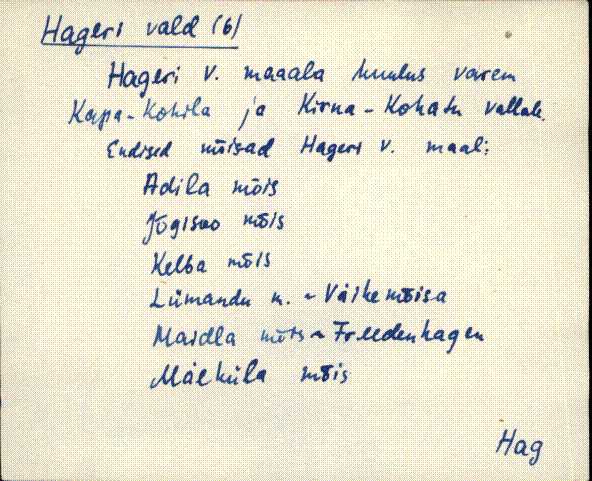 Hageri vald (6)
Hageri v. maaala kuulus varem
Kapa-Kohila ja Kirna-Kohatu vallale.
Endised mõisad Hageri v. maal:
Adila mõis
Jõgisoo mõis
Kelba mõis
Lümandu m. ~ Väike mõisa
Maidla mõis ~ Freedenhagen
Mäeküla mõis
Hag